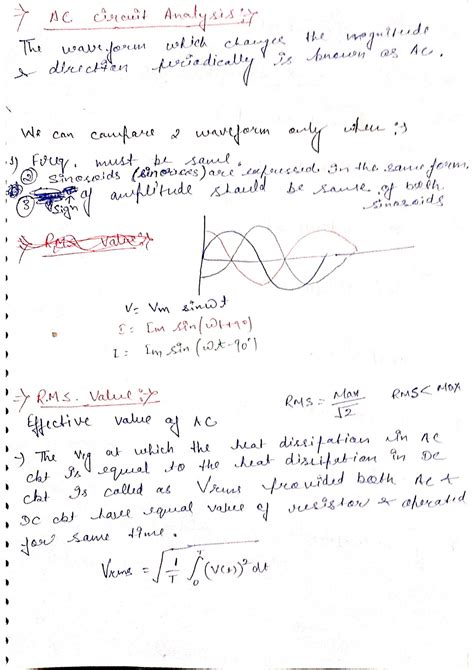 ⇒ AC Circuit Analysis :→
The waveform which changes the magnitude
& direction periodically is known as AC.
We can compare 2 waveform only when :→
1) Freq. must be same.
② Sinosoids are expressed in the same form.
③ Sign of amplitude should be same of both
sinosoids
⇒ R.M.S Value :→
V = Vm sinωt
I = Im sin(ωt+90)
I = Im sin(ωt-90°)
⇒ R.M.S. Value :→
RMS = Max/√2 RMS < Max
Effective value of AC
→ The vtg at which the heat dissipation in AC
ckt is equal to the heat dissipation in DC
ckt is called as Vrms provided both AC &
DC ckt have equal value of resistor & operated
for same time.
Vrms = √(1/T ∫₀ᵀ (V(t))² dt)